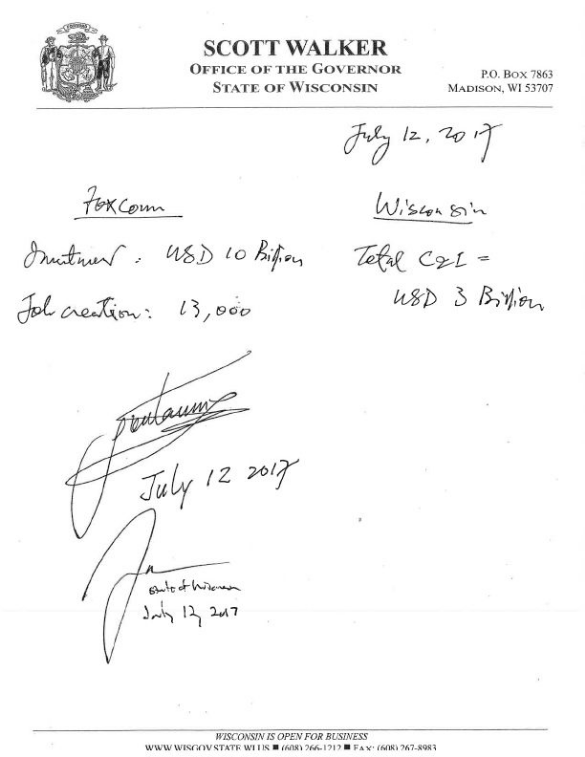 SCOTT WALKER
OFFICE OF THE GOVERNOR
STATE OF WISCONSIN
P.O. BOX 7863
MADISON, WI 53707
July 12, 2017
Foxconn
Investment : USD 10 Billion
Job creation : 13,000
Wisconsin
Total C&I =
USD 3 Billion
July 12 2017
State of Wisconsin
July 12, 2017
WISCONSIN IS OPEN FOR BUSINESS
WWW.WISGOV.STATE.WI.US ■ (608) 266-1212 ■ FAX: (608) 267-8983